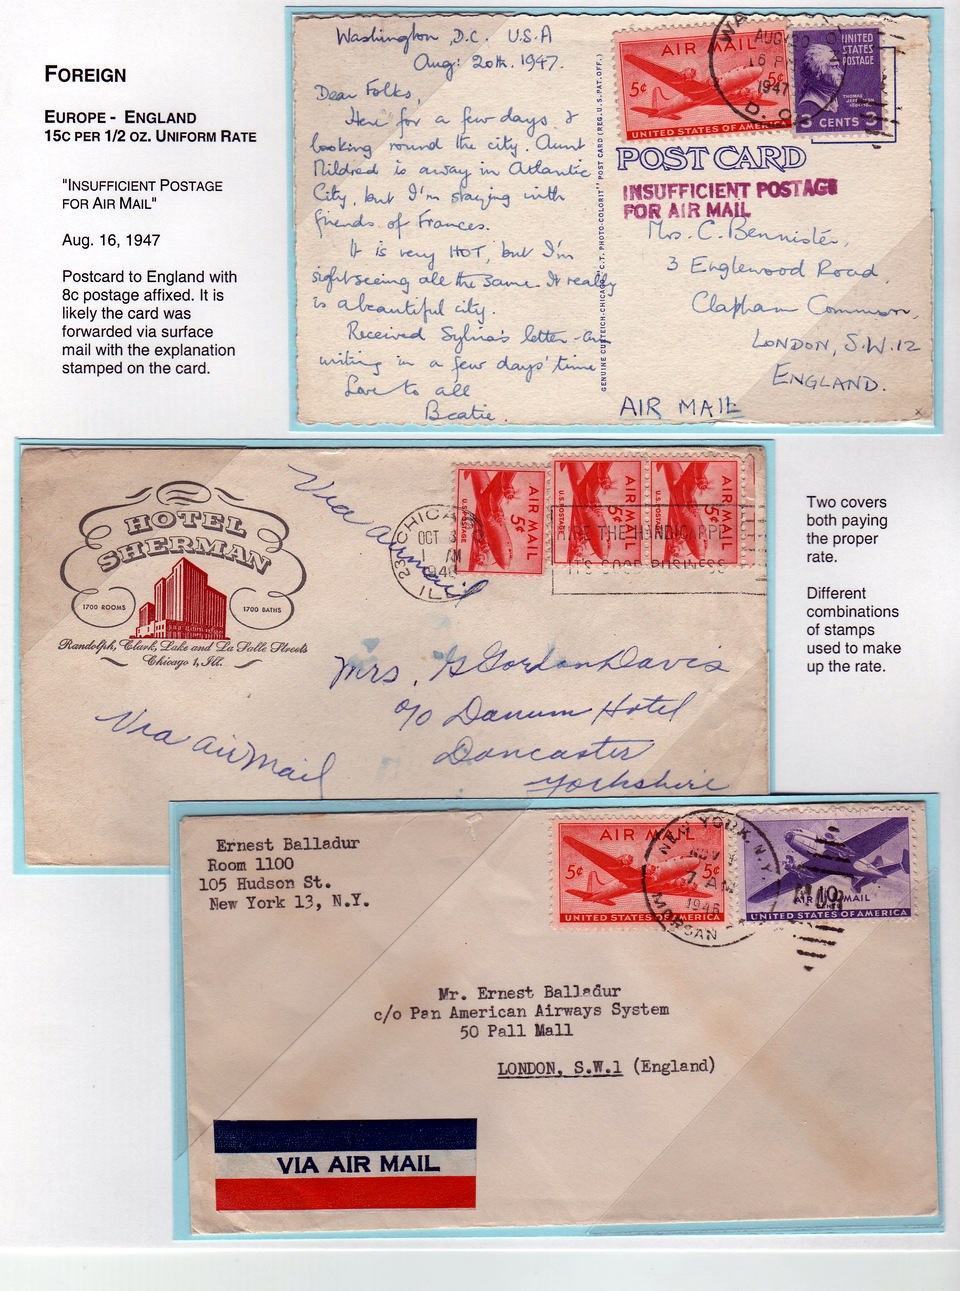 FOREIGN
EUROPE - ENGLAND
15C PER 1/2 OZ. UNIFORM RATE
"INSUFFICIENT POSTAGE
FOR AIR MAIL"
Aug. 16, 1947
Postcard to England with
8c postage affixed. It is
likely the card was
forwarded via surface
mail with the explanation
stamped on the card.
Washington, D.C. U.S.A
Aug: 20th. 1947.
Dear Folks,
Here for a few days &
looking round the city. Aunt
Mildred is away in Atlantic
City, but I'm staying with
friends of Frances.
It is very HOT, but I'm
sightseeing all the same. It really
is a beautiful city.
Received Sylvia's letter - am
writing in a few days' time
Love to all
Beatie.
GENUINE CURTEICH-CHICAGO C.T. PHOTO-COLORIT" POST CARD (REG. U.S. PAT. OFF.)
AIR MAIL
5¢ 5¢
UNITED STATES OF AMERICA
AUG 20
6 PM
1947
D.C.
UNITED
STATES
POSTAGE
THOMAS
3 CENTS 3
POST CARD
INSUFFICIENT POSTAGE
FOR AIR MAIL
Mrs. C. Bennister,
3 Englewood Road,
Clapham Common,
LONDON, S.W.12
ENGLAND.
AIR MAIL
HOTEL
SHERMAN
1700 ROOMS
1700 BATHS
Randolph, Clark, Lake and La Salle Streets
Chicago 1, Ill.
Via airmail
CHICAGO
OCT 3
1 AM
1948
ILL
AIR MAIL
5¢
U.S. POSTAGE
AIR MAIL
5¢
U.S. POSTAGE
AIR MAIL
5¢
U.S. POSTAGE
HIRE THE HANDICAPPED
IT'S GOOD BUSINESS
Mrs. G Gordon Davis
c/o Danum Hotel
Doncaster
Yorkshire
Via airmail
Two covers
both paying
the proper
rate.
Different
combinations
of stamps
used to make
up the rate.
Ernest Balladur
Room 1100
105 Hudson St.
New York 13, N.Y.
AIR MAIL
5¢ 5¢
UNITED STATES OF AMERICA
NEW YORK, N.Y.
NOV
7 AM
1946
MORGAN
10
AIR MAIL
UNITED STATES OF AMERICA
Mr. Ernest Balladur
c/o Pan American Airways System
50 Pall Mall
LONDON, S.W.1 (England)
VIA AIR MAIL